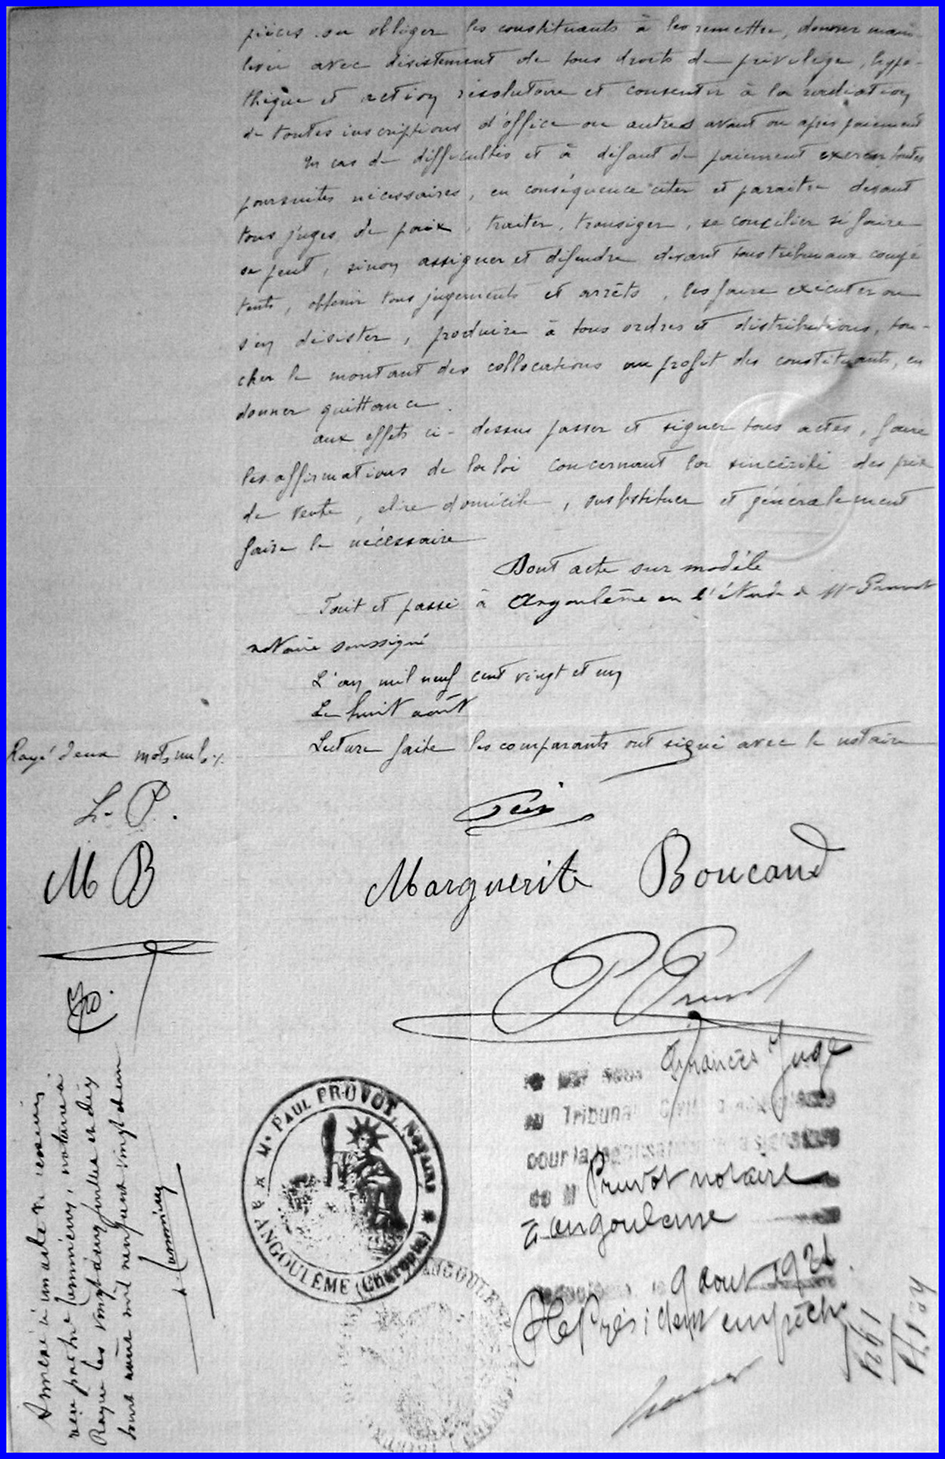 pièces ou obliger les constituants à les remettre, donner main-
levée avec désistement de tous droits de privilège, hypo-
thèque et action résolutoire et consentir à la radiation
de toutes inscriptions d'office ou autres avant ou après paiement
En cas de difficultés et à défaut de paiement exercer toutes
poursuites nécessaires, en conséquence citer et paraître devant
tous juges de paix, traiter, transiger, se concilier si faire
se peut, sinon assigner et défendre devant tous tribunaux compé
tents, obtenir tous jugements et arrêts, les faire exécuter ou
s'en désister, produire à tous ordres et distributions, tou-
cher le montant des collocations au profit des constituants, en
donner quittance.
aux effets ci-dessus passer et signer tous actes, faire
les affirmations de la loi concernant la sincérité des prix
de vente, élire domicile, substituer et généralement
faire le nécessaire
Dont acte sur modèle
Fait et passé à Angoulême en l'étude de Me Pruvot
notaire soussigné
L'an mil neuf cent vingt et un
Le huit août
Lecture faite les comparants ont signé avec le notaire
Rayé deux mots nuls
L. P.
M B
Marguerite Boucaud
P Pruvot
Juge
au Tribunal Civil
pour la
de M Pruvot notaire
à angouleme
9 aout 1921.
Le Président empêché
Me PAUL PRUVOT, NOTAIRE
ANGOULÊME (Charente)
ANGOULÊME
Annexé à la minute
notaire à
1921